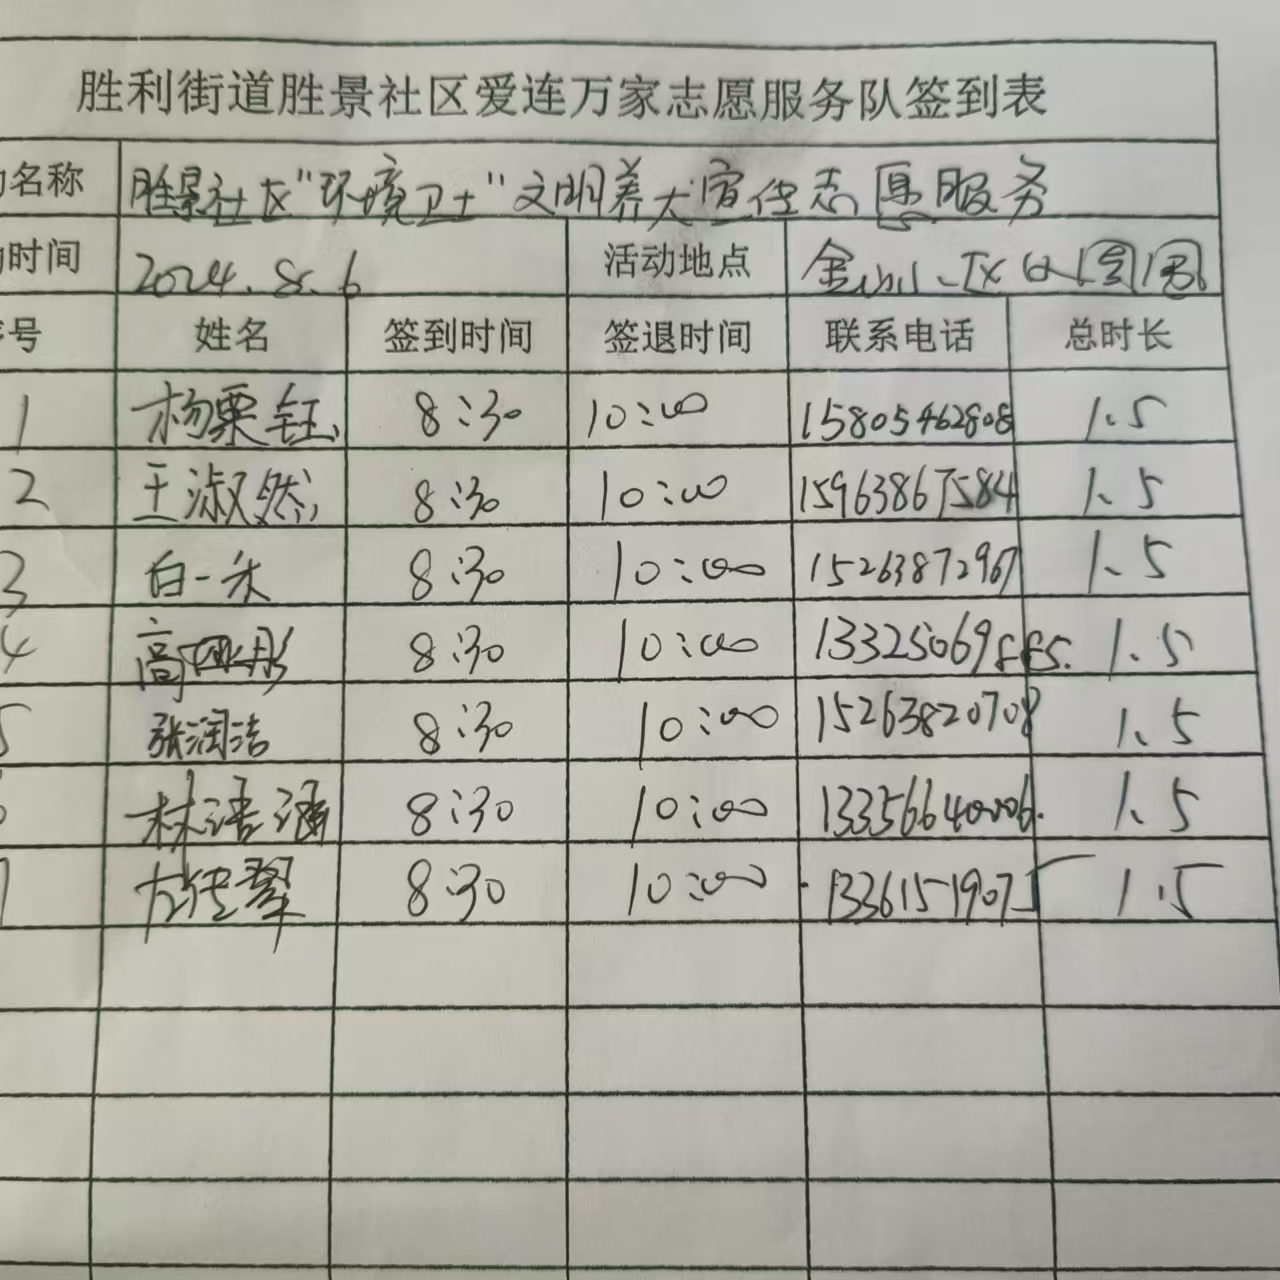 胜利街道胜景社区爱连万家志愿服务队签到表
名称 胜景社区“环境卫士”文明养犬宣传志愿服务
时间 2024.8.6 活动地点 金山小区
号 姓名 签到时间 签退时间 联系电话 总时长
1 杨栗钰 8:30 10:00 15805462808 1.5
2 王淑然 8:30 10:00 15963867584 1.5
3 白一禾 8:30 10:00 15263872967 1.5
4 高 彤 8:30 10:00 13325069885. 1.5
5 张润洁 8:30 10:00 15263820708 1.5
林语涵 8:30 10:00 13356640006. 1.5
8:30 10:00 13361519075 1.5